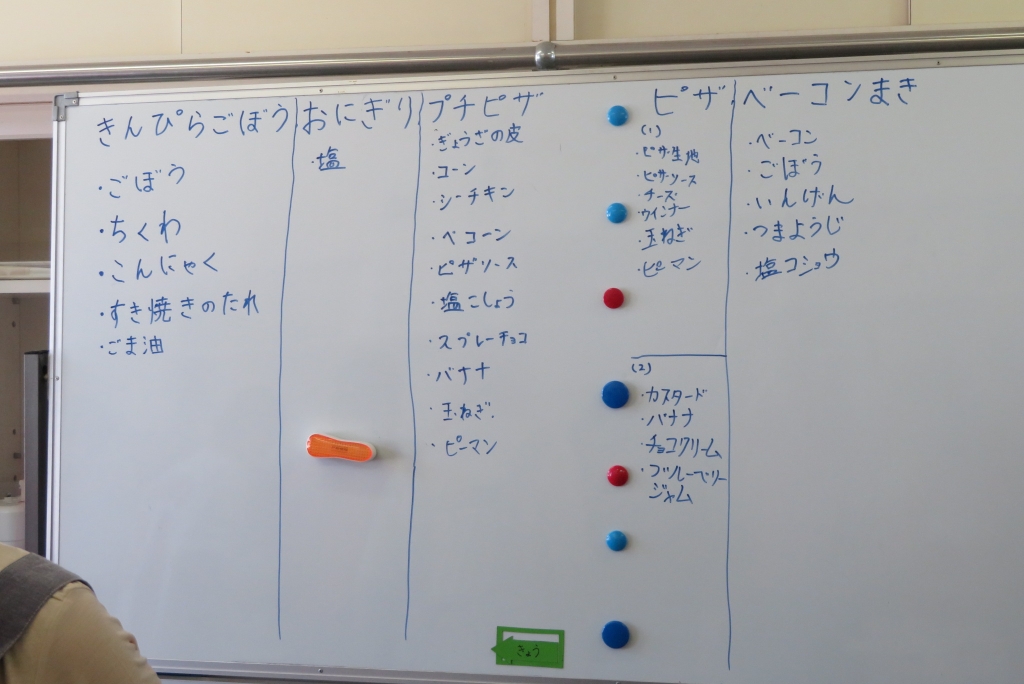 きんぴらごぼう
・ごぼう
・ちくわ
・こんにゃく
・すき焼きのたれ
・ごま油
おにぎり
・塩
プチピザ
・ぎょうざの皮
・コーン
・シーチキン
・ベコーン
・ピザソース
・塩こしょう
・スプレーチョコ
・バナナ
・玉ねぎ
・ピーマン
ピザ
(1)
・ピザ生地
・ピザソース
・チーズ
・ウインナー
・玉ねぎ
・ピーマン
(2)
・カスタード
・バナナ
・チョコクリーム
・ブルーベリー
ジャム
ベーコンまき
・ベーコン
・ごぼう
・いんげん
・つまようじ
・塩コショウ
きょう